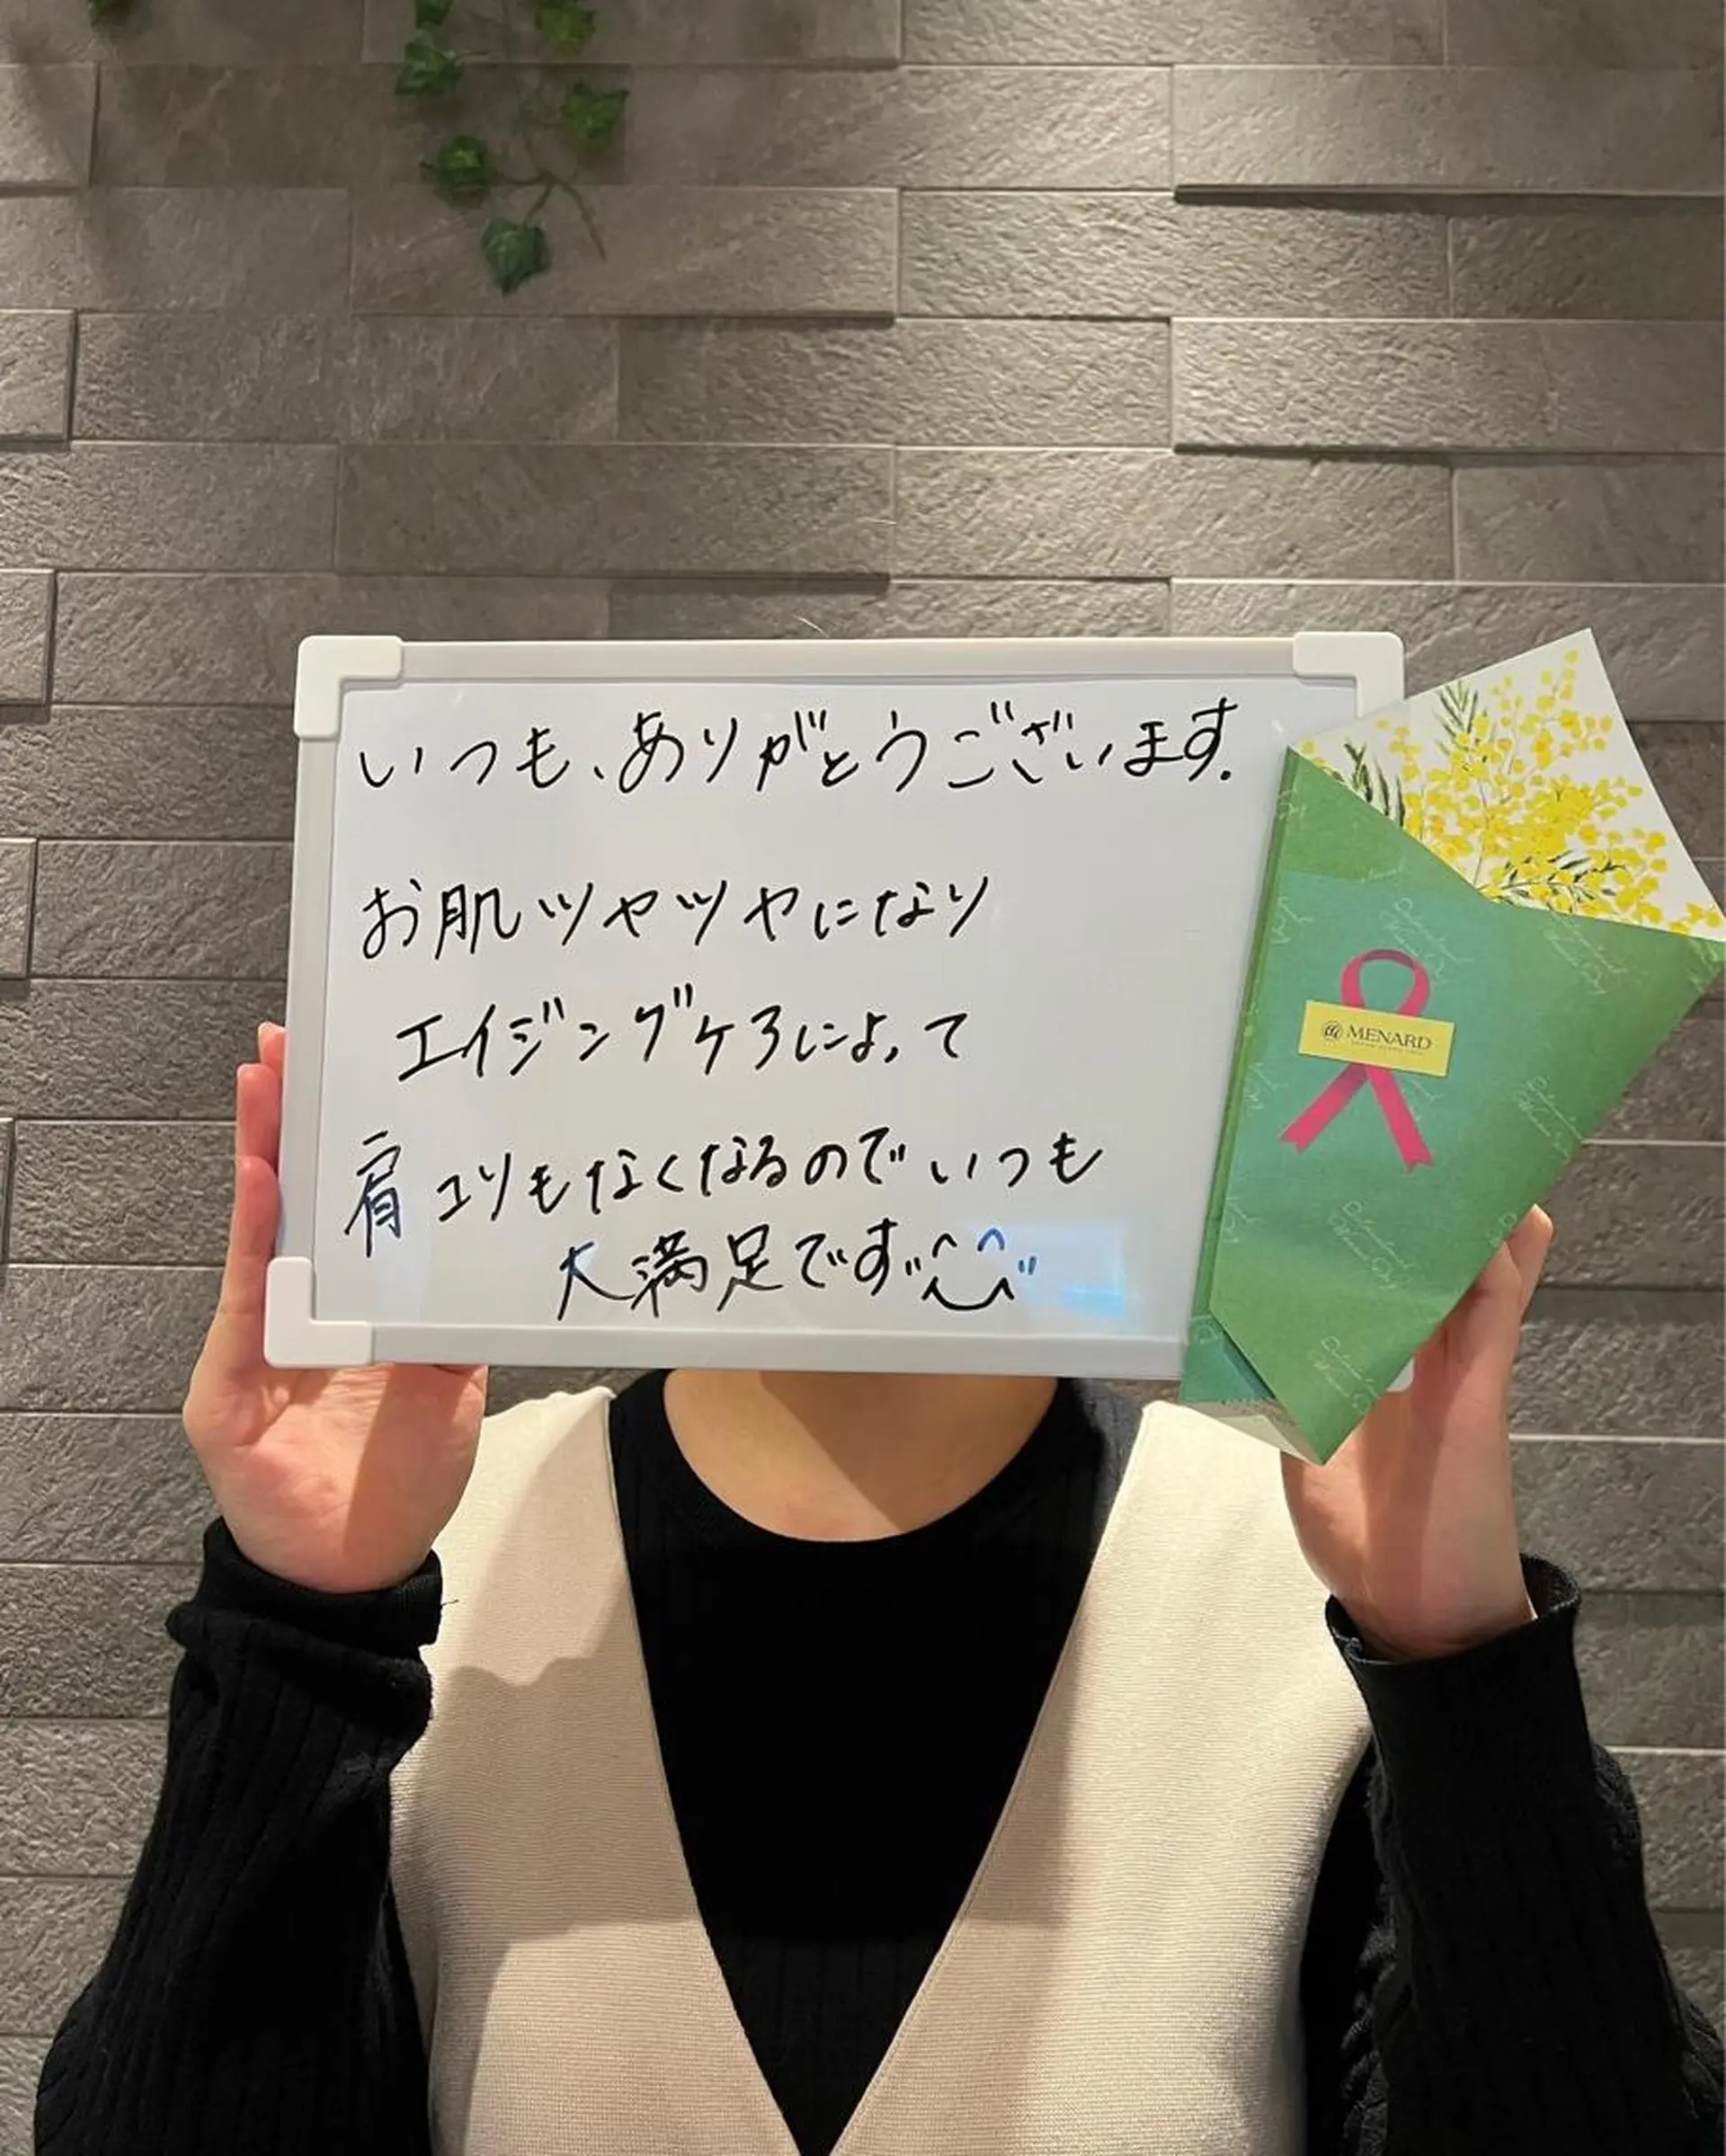 いつも、ありがとうございます.
お肌ツヤツヤになり
エイジングケアによって
肩コリもなくなるのでいつも
大満足です
MENARD